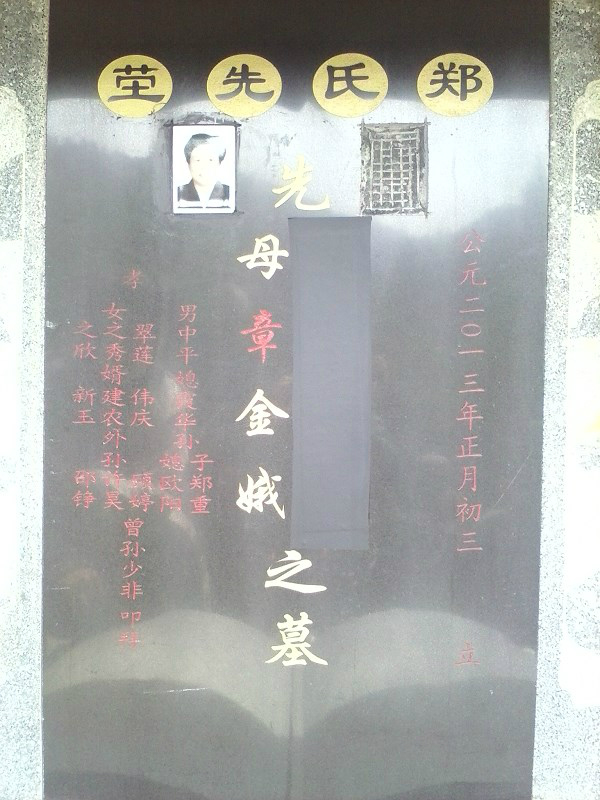 郑氏先茔
公元二〇一三年正月初三 立
先母章金娥之墓
子郑重
男中平媳 华孙媳欧阳
翠莲 伟庆 颐婷
曾孙少非 叩
孝女之秀婿建农外孙 昊
之欣 新玉 邵铮